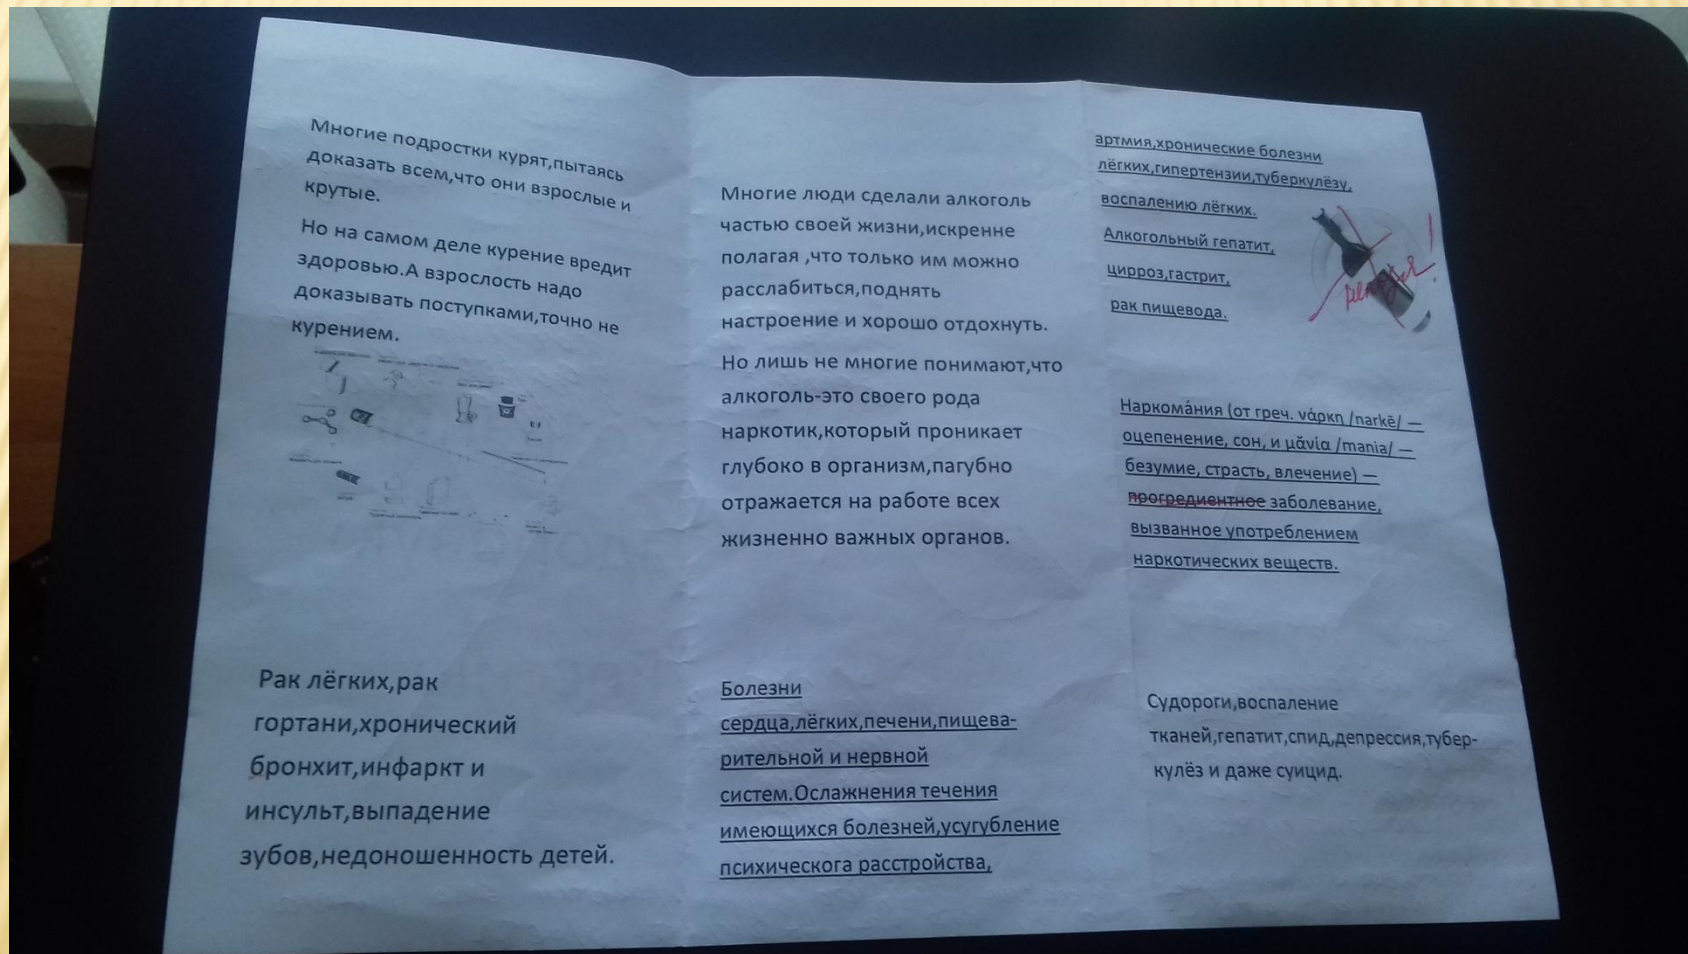 Многие подростки курят,пытаясь
доказать всем,что они взрослые и
крутые.
Но на самом деле курение вредит
здоровью.А взрослость надо
доказывать поступками,точно не
курением.
Рак лёгких,рак
гортани,хронический
бронхит,инфаркт и
инсульт,выпадение
зубов,недоношенность детей.
Многие люди сделали алкоголь
частью своей жизни,искренне
полагая ,что только им можно
расслабиться,поднять
настроение и хорошо отдохнуть.
Но лишь не многие понимают,что
алкоголь-это своего рода
наркотик,который проникает
глубоко в организм,пагубно
отражается на работе всех
жизненно важных органов.
Болезни
сердца,лёгких,печени,пищева-
рительной и нервной
систем.Ослажнения течения
имеющихся болезней,усугубление
психическога расстройства,
артмия,хронические болезни
лёгких,гипертензии,туберкулёзу,
воспалению лёгких.
Алкогольный гепатит,
цирроз,гастрит,
рак пищевода.
Наркома́ния (от греч. νάρκη /narkē/ —
оцепенение, сон, и μᾰνία /mania/ —
безумие, страсть, влечение) —
прогредиентное заболевание,
вызванное употреблением
наркотических веществ.
Судороги,воспаление
тканей,гепатит,спид,депрессия,тубер-
кулёз и даже суицид.